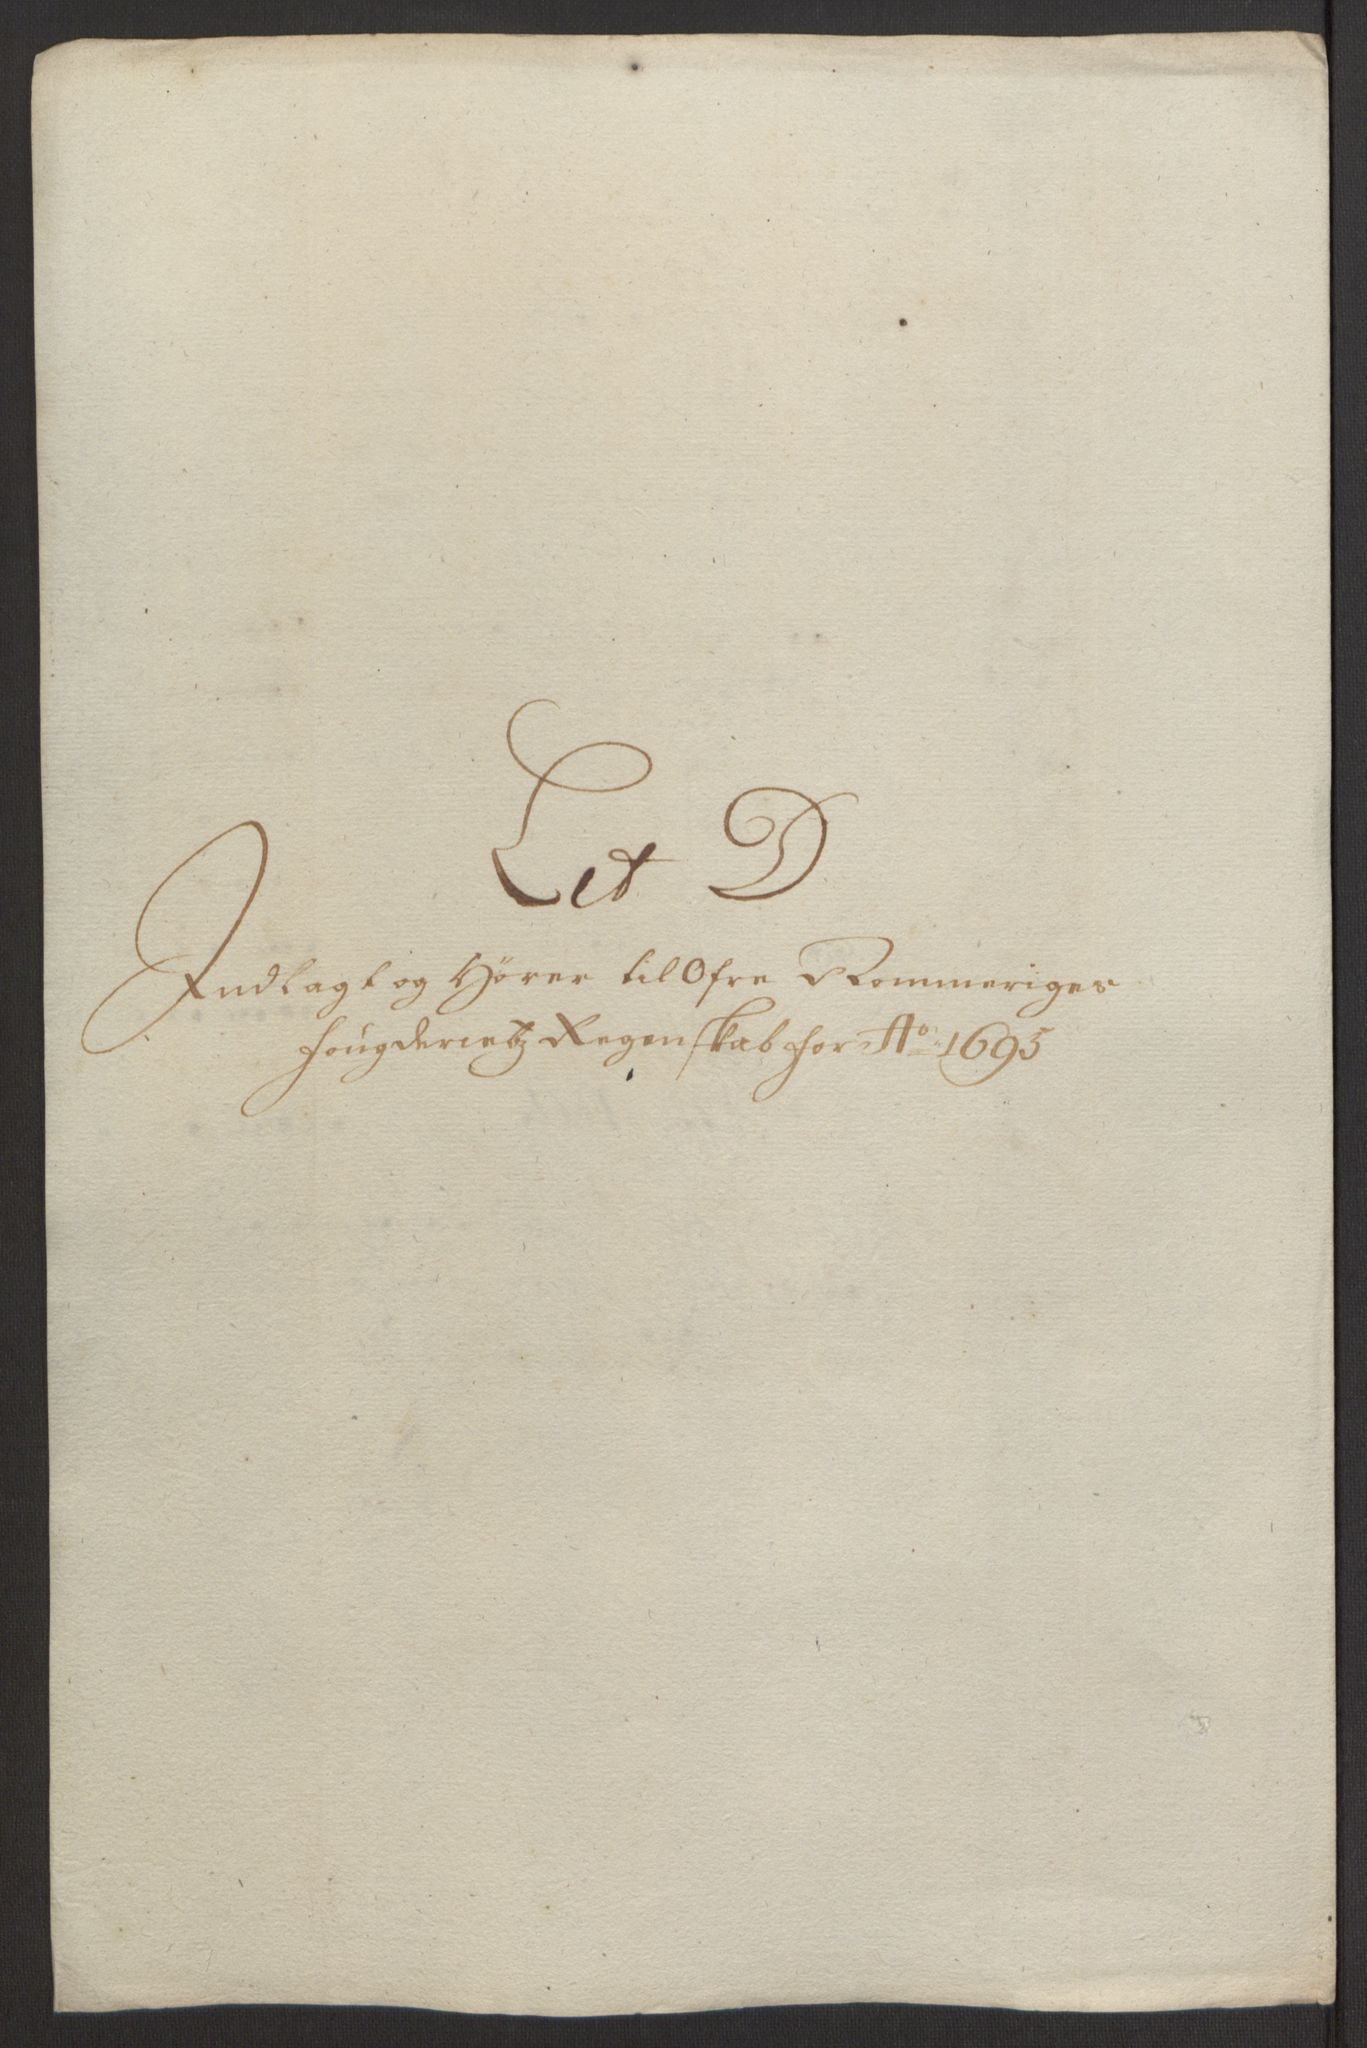 Let D
Indlagt og Hører til Ofre Rommeriges
fougderietz Regenskab for Ao 1695